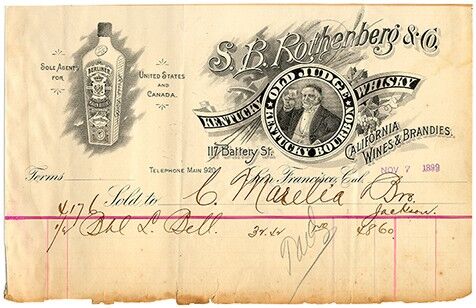 S. B. Rothenberg & Co.
SOLE AGENTS FOR
UNITED STATES AND CANADA.
KENTUCKY WHISKY
OLD JUDGE
KENTUCKY BOURBON
CALIFORNIA WINES & BRANDIES.
117 Battery St.
TELEPHONE MAIN 920
NOV 7 1899
Terms
San Francisco, Cal.
Sold to C. Marelia & Bro.
Jackson.
4176
1/2 Bbl L. Bell. 48 60
Paid